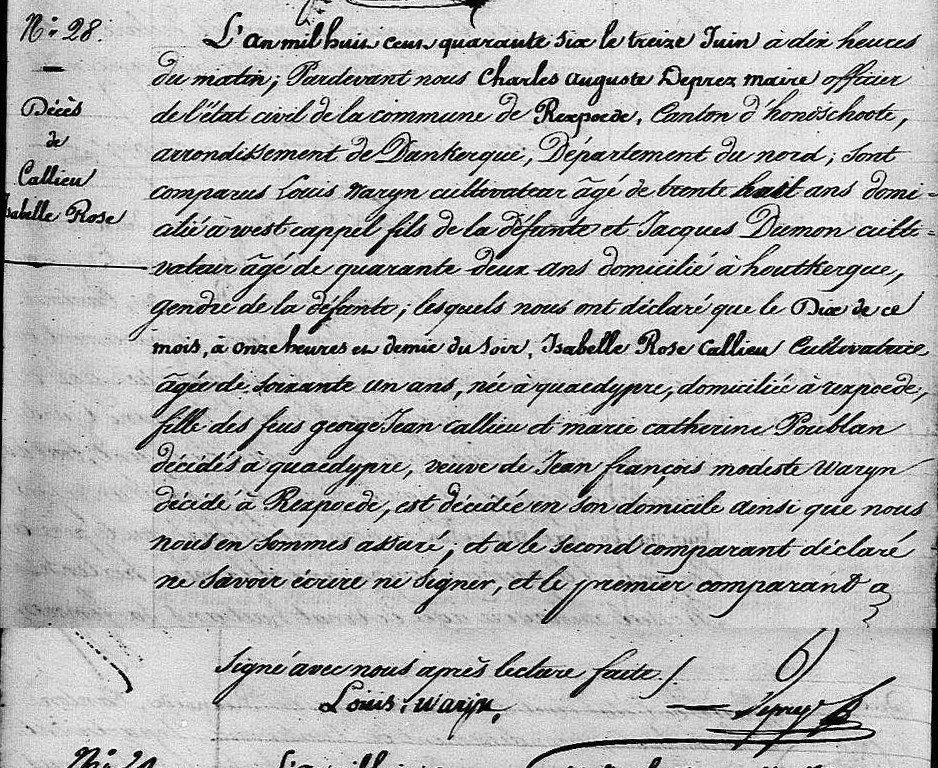 N.° 28.
Décès
de
Callieu
Isabelle Rose
L'an mil huit cent quarante six le treize Juin à dix heures
du matin; Pardevant nous Charles auguste Deprez maire officier
de l'état civil de la commune de Rexpoede, Canton d'hondschoote,
arrondissement de Dunkerque, Département du nord; sont
comparus Louis Waryn cultivateur âgé de trente huit ans domi-
cilié à west cappel fils de la défunte et Jacques Dumon culti-
vateur âgé de quarante deux ans domicilié à houtkerque,
gendre de la défunte; lesquels nous ont déclaré que le Dix de ce
mois, à onze heures et demie du soir, Isabelle Rose Callieu Cultivatrice
âgée de soixante un ans, née à quaedypre, domiciliée à rexpoede,
fille des feus george Jean Callieu et marie catherine Poublan
décédés à quaedypre, veuve de Jean françois modeste waryn
décédé à Rexpoede, est décédée en son domicile ainsi que nous
nous en sommes assuré, et a le second comparant déclaré
ne savoir écrire ne signer, et le premier comparant a
signé avec nous après lecture faite /
Louis. waryn.
Deprez
N.°
L'an mil huit